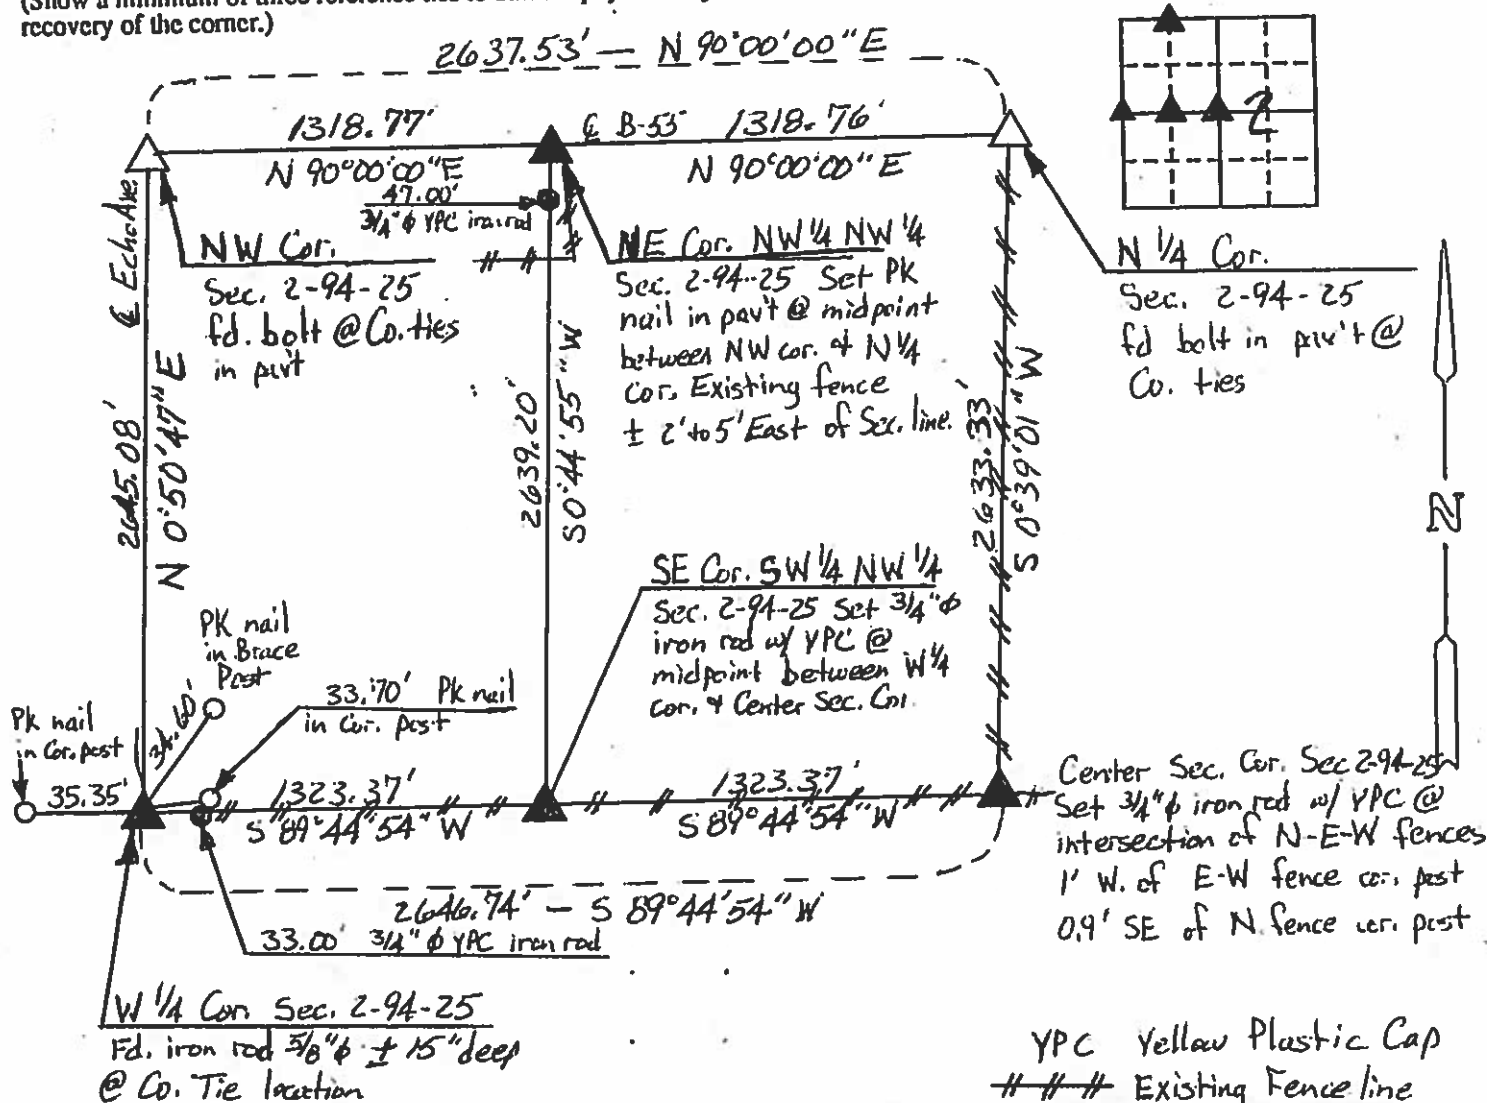 recovery of the corner.)
2637.53' — N 90°00'00"E
1318.77'
℄ B-55
1318.76'
N 90°00'00"E
N 90°00'00"E
47.00'
3/4"ϕ YPC iron rod
2
℄ Echo Ave.
NW Cor.
Sec. 2-94-25
fd. bolt @ Co. ties
in pvt
NE Cor. NW 1/4 NW 1/4
Sec. 2-94-25 Set PK
nail in pav't @ midpoint
between NW cor. & N 1/4
Cor. Existing fence
± 2' to 5' East of Sec. line.
N 1/4 Cor.
Sec. 2-94-25
fd bolt in pav't @
Co. ties
2645.08'
N 0°50'47"E
2639.20'
S 0°44'55"W
2633.33'
S 0°39'01"W
N
SE Cor. SW 1/4 NW 1/4
Sec. 2-94-25 Set 3/4"ϕ
iron rod w/ YPC @
midpoint between W 1/4
cor. & Center Sec. Cor.
PK nail
in Brace
Post
33.70' PK nail
in Cor. post
PK nail
in Cor. post
35.35'
1323.37'
S 89°44'54"W
1323.37'
S 89°44'54"W
Center Sec. Cor. Sec 2-94-25
Set 3/4"ϕ iron rod w/ YPC @
intersection of N-E-W fences
1' W. of E-W fence cor. post
0.9' SE of N. fence cor. post
2646.74' — S 89°44'54"W
33.00 3/4"ϕ YPC iron rod
W 1/4 Cor. Sec. 2-94-25
Fd. iron rod 5/8"ϕ ± 15" deep
@ Co. Tie location
YPC Yellow Plastic Cap
Existing Fence line